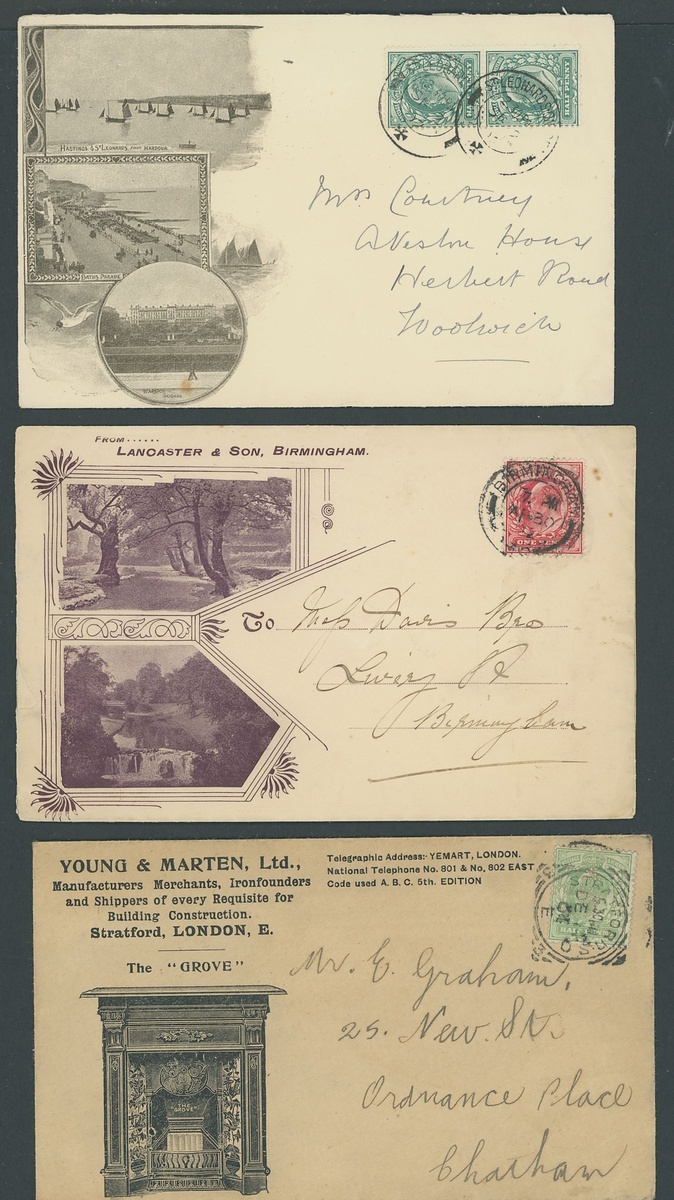 HALF PENNY
ST LEONARDS
HASTINGS & ST LEONARDS FROM HARBOUR
Mrs Courtney
Aveston House
DAVID'S PARADE
Herbert Road
Woolwich
WARRIOR SQUARE
FROM......
LANCASTER & SON, BIRMINGHAM.
BIRMINGHAM
ONE PENNY
To Mess Davis Bro
Livery St
Birmingham
YOUNG & MARTEN, Ltd.,
Manufacturers Merchants, Ironfounders
and Shippers of every Requisite for
Building Construction.
Stratford, LONDON, E.
Telegraphic Address:- YEMART, LONDON.
National Telephone No. 801 & No, 802 EAST
Code used A. B. C. 5th. EDITION
STRATFORD
The "GROVE"
Mr. E. Graham,
25. New. St.
Ordnance Place
Chatham
THE "GROVE"